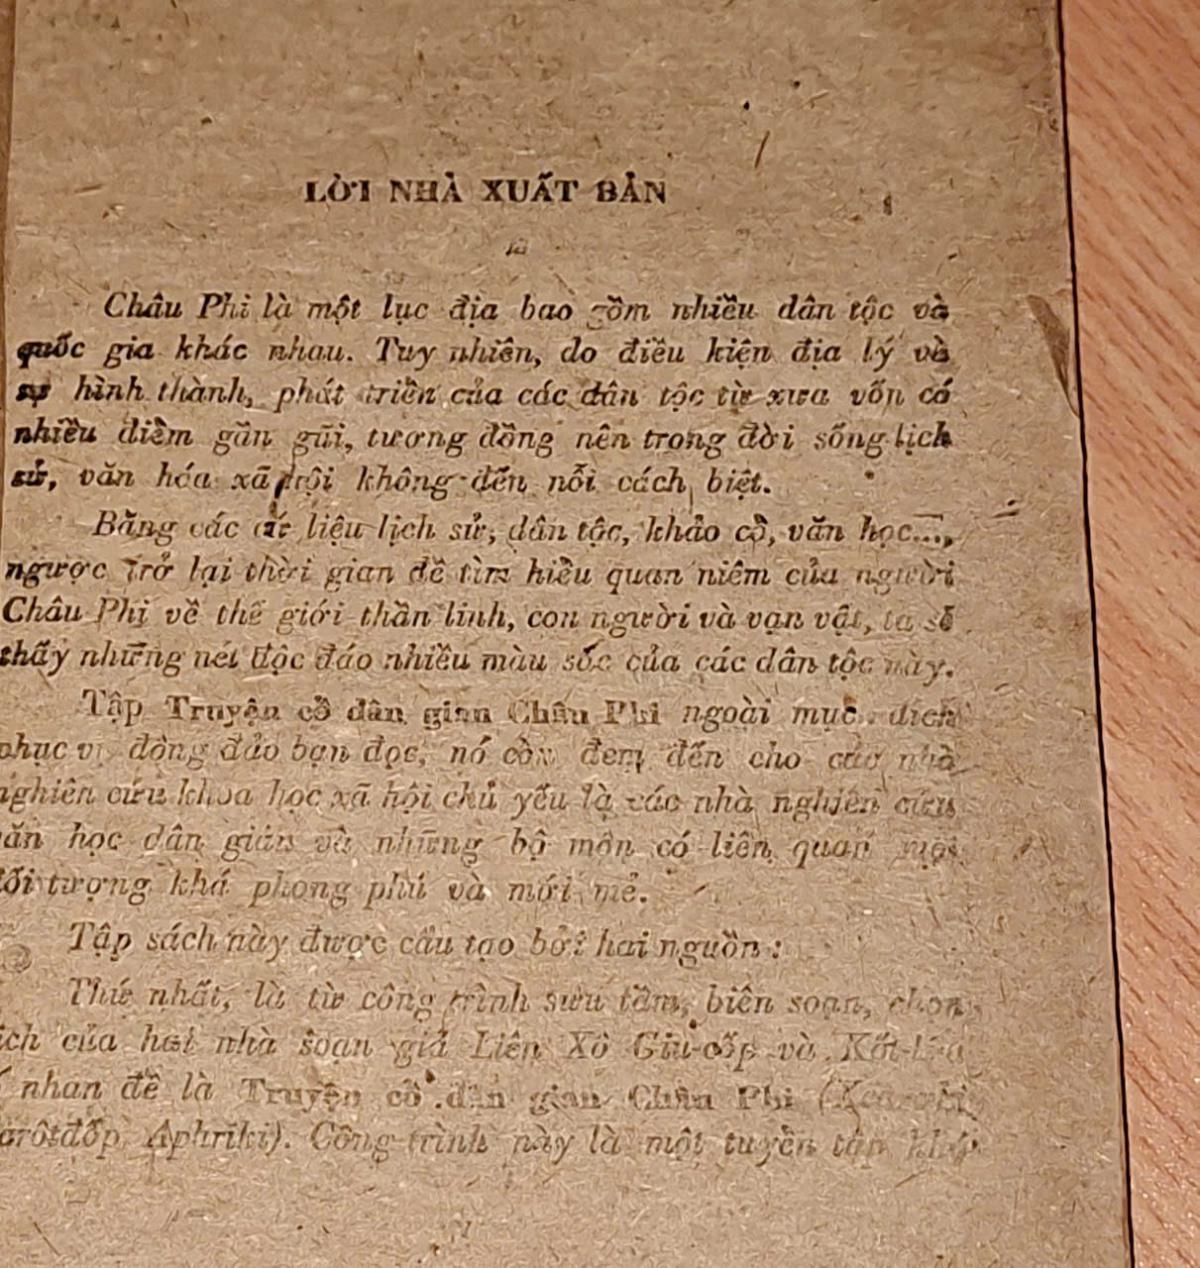 LỜI NHÀ XUẤT BẢN
Châu Phi là một lục địa bao gồm nhiều dân tộc và
quốc gia khác nhau. Tuy nhiên, do điều kiện địa lý và
sự hình thành, phát triển của các dân tộc từ xưa vốn có
nhiều điểm gần gũi, tương đồng nên trong đời sống lịch
sử, văn hóa xã hội không đến nỗi cách biệt.
Bằng các cứ liệu lịch sử, dân tộc, khảo cổ, văn học...,
ngược trở lại thời gian để tìm hiểu quan niêm của người
Châu Phi về thế giới thần linh, con người và vạn vật, ta sẽ
thấy những nét độc đáo nhiều màu sắc của các dân tộc này.
Tập Truyện cổ dân gian Châu Phi ngoài mục đích
phục vụ đông đảo bạn đọc, nó còn đem đến cho các nhà
nghiên cứu khoa học xã hội chủ yếu là các nhà nghiên cứu
văn học dân gian và những bộ môn có liên quan một
đối tượng khá phong phú và mới mẻ.
Tập sách này được cấu tạo bởi hai nguồn:
Thứ nhất, là từ công trình sưu tầm, biên soạn, chọn
của hai nhà soạn giả Liên Xô Giu-cốp và
nhan đề là Truyện cổ dân gian Châu Phi
Aphriki). Công trình này là một tuyển tập khá